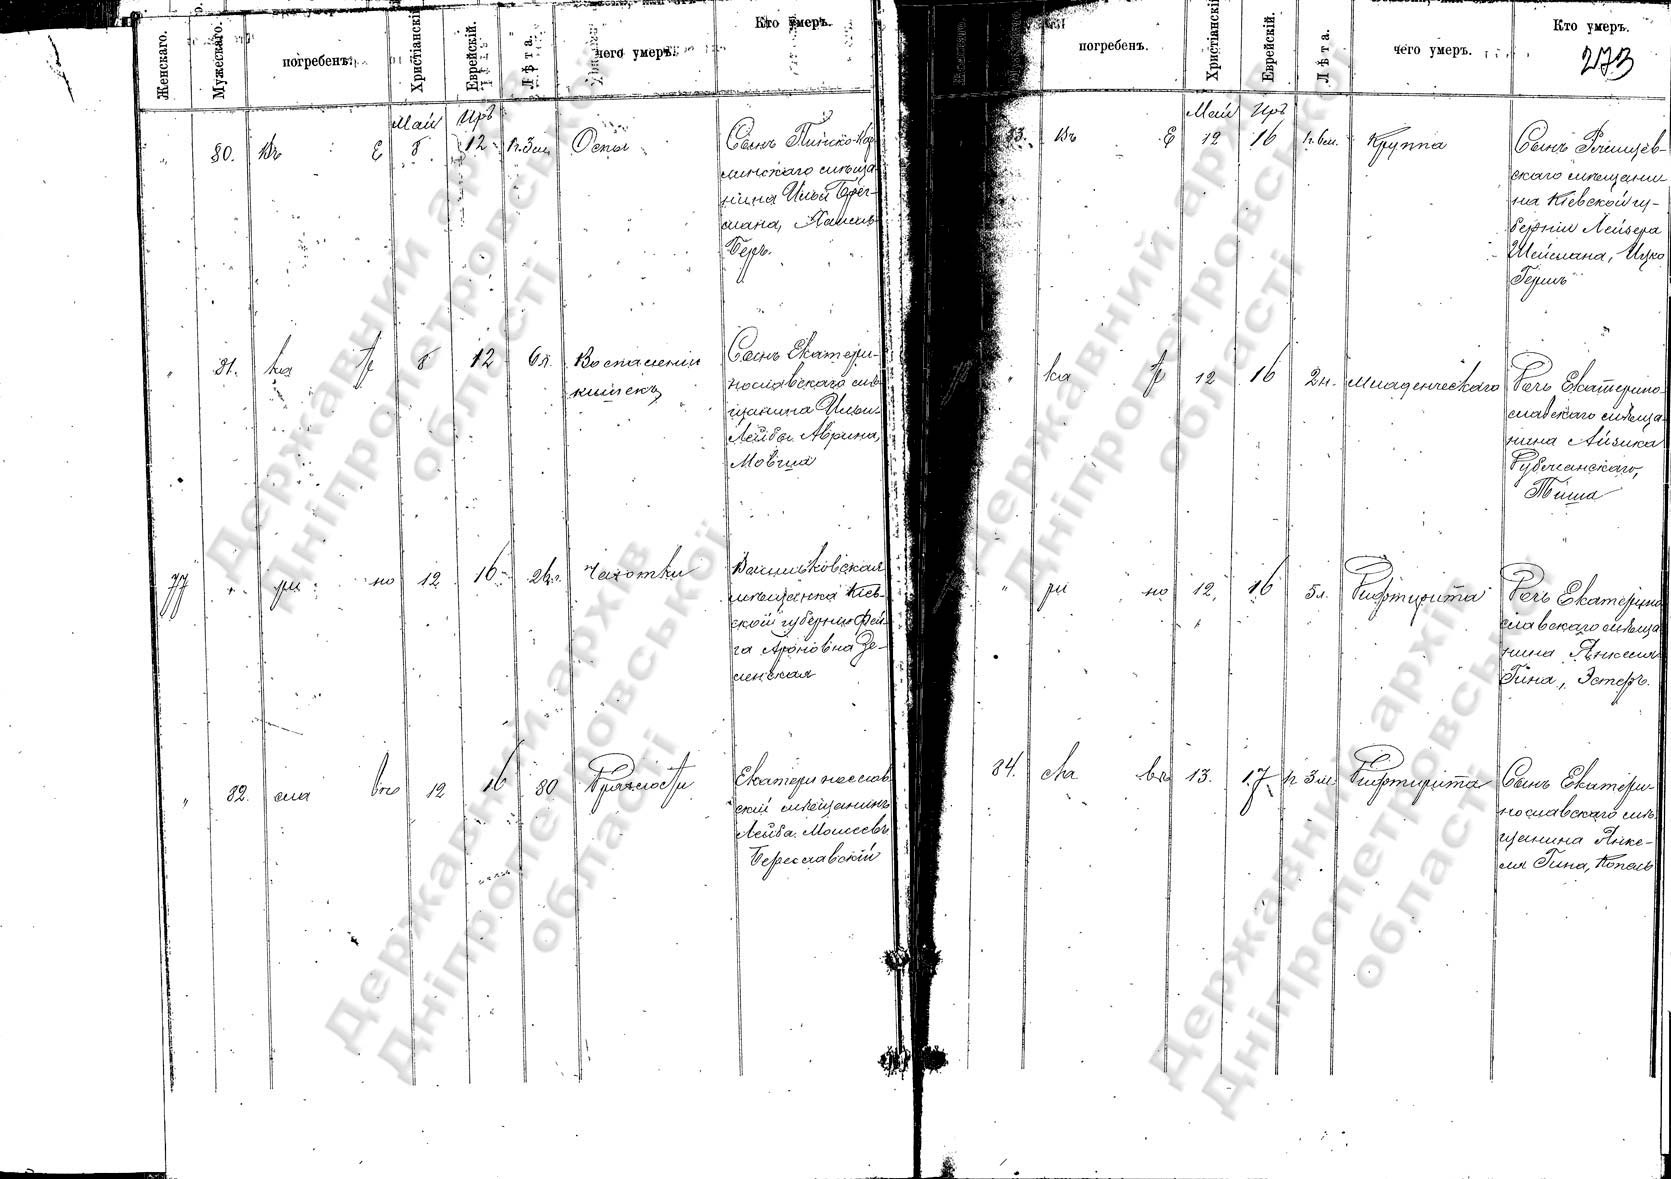 Женскаго.
Мужескаго.
погребенъ.
Христіанскій
Еврейскій.
Лѣта.
чего умеръ.
Кто умеръ.
Май
Иръ
80.
Въ
Е
12
Оспы
Сынъ Пинско-Кар-
линскаго мѣща-
нина
мана,
Беръ.
81.
ка
12
6 л.
Воспаленія
кишекъ
Сынъ Екатери-
нославскаго мѣ-
щанина
Лейбы Аврина,
Мовша
77
ри
но
12
16
Чахотки
Васильковская
мѣщанка Кіев-
ской губерніи Фей-
га Ароновна
ленская
82.
сла
въ
12
16
80
Дряхлости
Екатеринослав
скій мѣщанинъ
Лейба Моисеевъ
Береславскій
погребенъ.
Христіанскій
Еврейскій.
Лѣта.
чего умеръ.
Кто умеръ.
273
Май
Иръ
83.
Въ
Е
12
16
Круппа
Сынъ
скаго мѣщани
на Кіевской гу-
берніи Лейзера
Шеймана, Ицко
Гершъ
ка
12
16
2 н.
Младенческаго
Дочь Екатерино-
славскаго мѣща-
нина Айзика
ри
но
12
16
5 л.
Дифтирита
Дочь Екатерино
славскаго мѣща
нина Янкеля
Гина, Эстеръ.
84.
сла
въ
13.
17
3 м.
Дифтирита
Сынъ Екатери-
нославскаго мѣ-
щанина Янке-
ля Гина, Копель
Державний архів
Дніпропетровської
області